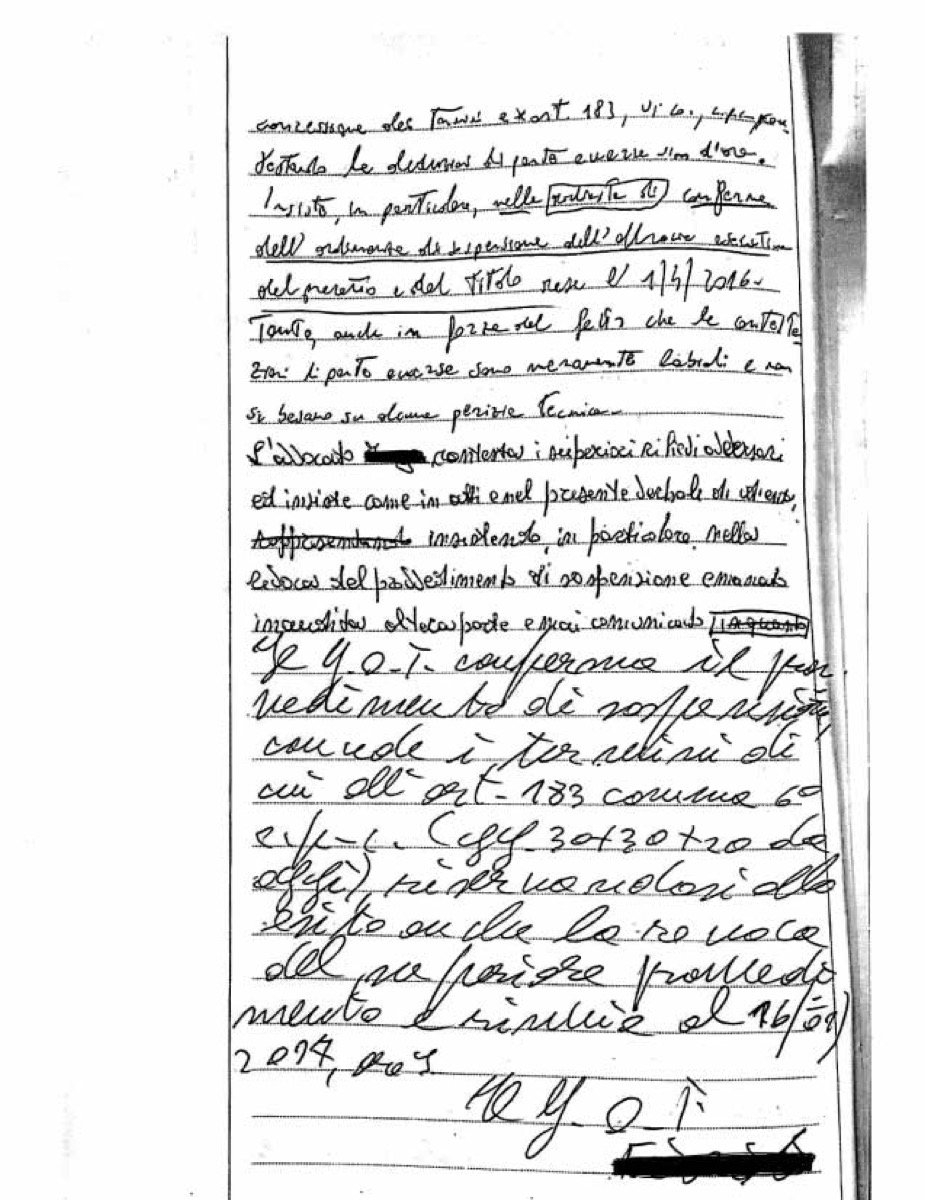 concessione dei termini ex art. 183, VI co., c.p.c. con-
testando le deduzioni di parte avversa sin d'ora.
Insisto, in particolare, nella richiesta di conferma
dell'ordinanza di sospensione dell'efficacia esecutiva
del precetto e del titolo resa l'1/4/2016.
Tanto, anche in forza del fatto che le contesta
zioni di parte avversa sono meramente labiali e non
si basano su alcuna perizia tecnica.
L'avvocato contesta i superiori rilievi avversari
ed insiste come in atti e nel presente verbale di udienza,
rappresentando insistendo, in particolare, nella
revoca del provvedimento di sospensione emanato
inaudita altera parte e mai comunicato in quanto
Il G.O.T. conferma il prov
vedimento di sospensione,
concede i termini di
cui all'art. 183 comma 6°
c.p.c. (gg. 30+30+20 da
oggi) riservandosi allo
esito anche la revoca
del superiore provvedi
mento e rinvia al 16/
2017, ore 9
Il G.O.T.